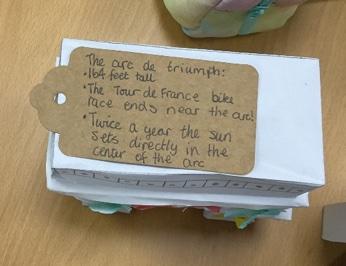 The arc de triumph:
• 164 feet tall
• The Tour de France bike
race ends near the arc!
• Twice a year the sun
sets directly in the
center of the arc